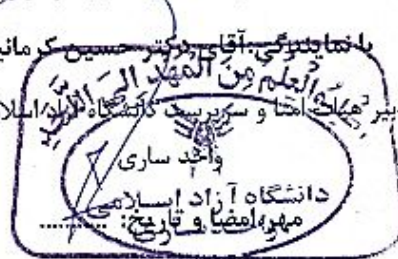 با نمایندگی: آقای دکتر حسین کرمانی
اطلبوا العلم من المهد الی اللحد
دبیر هیات امنا و سرپرست دانشگاه آزاد اسلا
واحد ساری
دانشگاه آزاد اسلامی
مهر، امضا و تاریخ: ..........